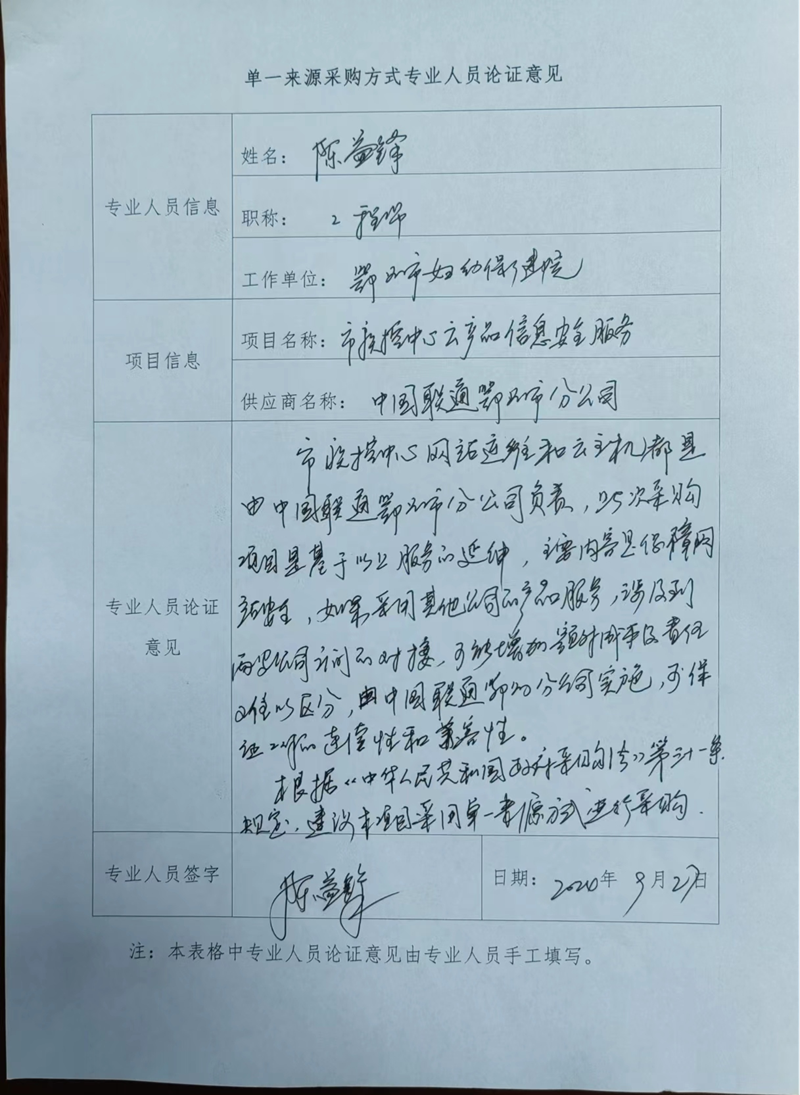 单一来源采购方式专业人员论证意见
专业人员信息
姓名: 陈益锋
职称: 工程师
工作单位: 鄂州市妇幼保健院
项目信息
项目名称: 市疾控中心云产品信息安全服务
供应商名称: 中国联通鄂州市分公司
专业人员论证
意见
市疾控中心网站运维和云主机都是
由中国联通鄂州市分公司负责,此次采购
项目是基于以上服务的延伸,主要内容是保障网
站安全,如果采用其他公司的产品服务,涉及到
两家公司之间的对接,可能增加额外成本及责任
难以区分,由中国联通鄂州分公司实施,可保
证工作的连续性和兼容性。
根据《中华人民共和国政府采购法》第三十一条
规定,建议本项目采用单一来源方式进行采购.
专业人员签字
陈益锋
日期: 2020年9月27日
注:本表格中专业人员论证意见由专业人员手工填写。